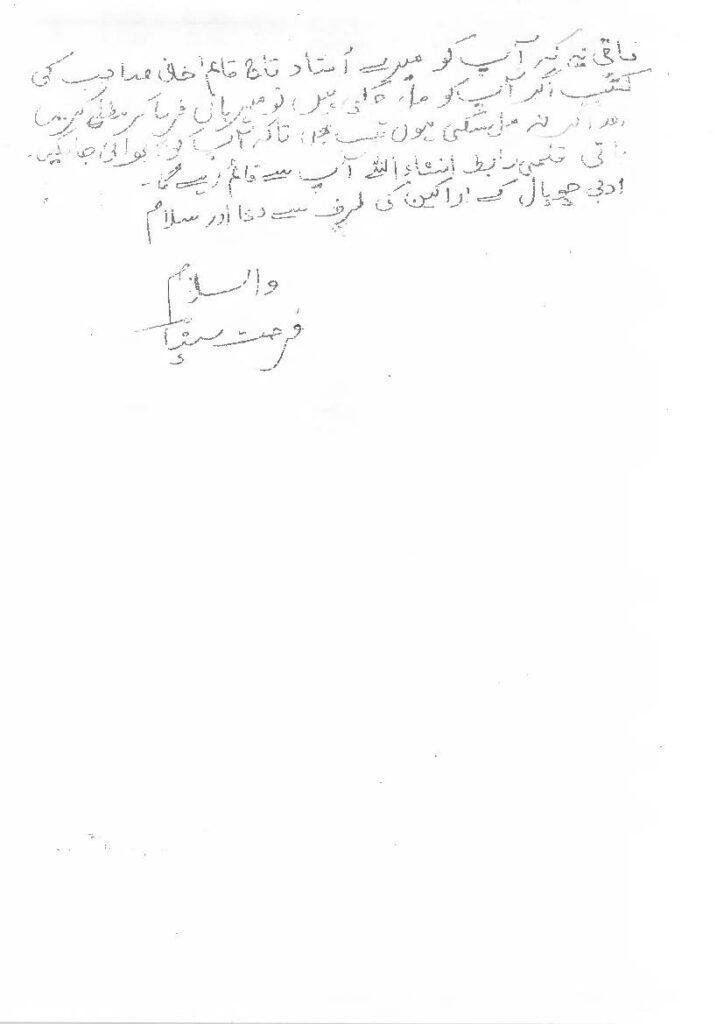 باقی یہ کہ آپ کو میرے اُستاد تاج قائم خانی صاحب کی
کتب اگر آپ کو مل گئی ہیں تو مہربانی فرما کر مطلع کریں
اور اگر نہ مل سکی ہوں تب بھی تاکہ آپ کو بھجوائی جا سکیں۔
باقی قلمی رابطہ انشاء اللہ آپ سے قائم رہے گا۔
ادبی چوپال کے اراکین کی طرف سے دعا اور سلام
والسلام
فرحت